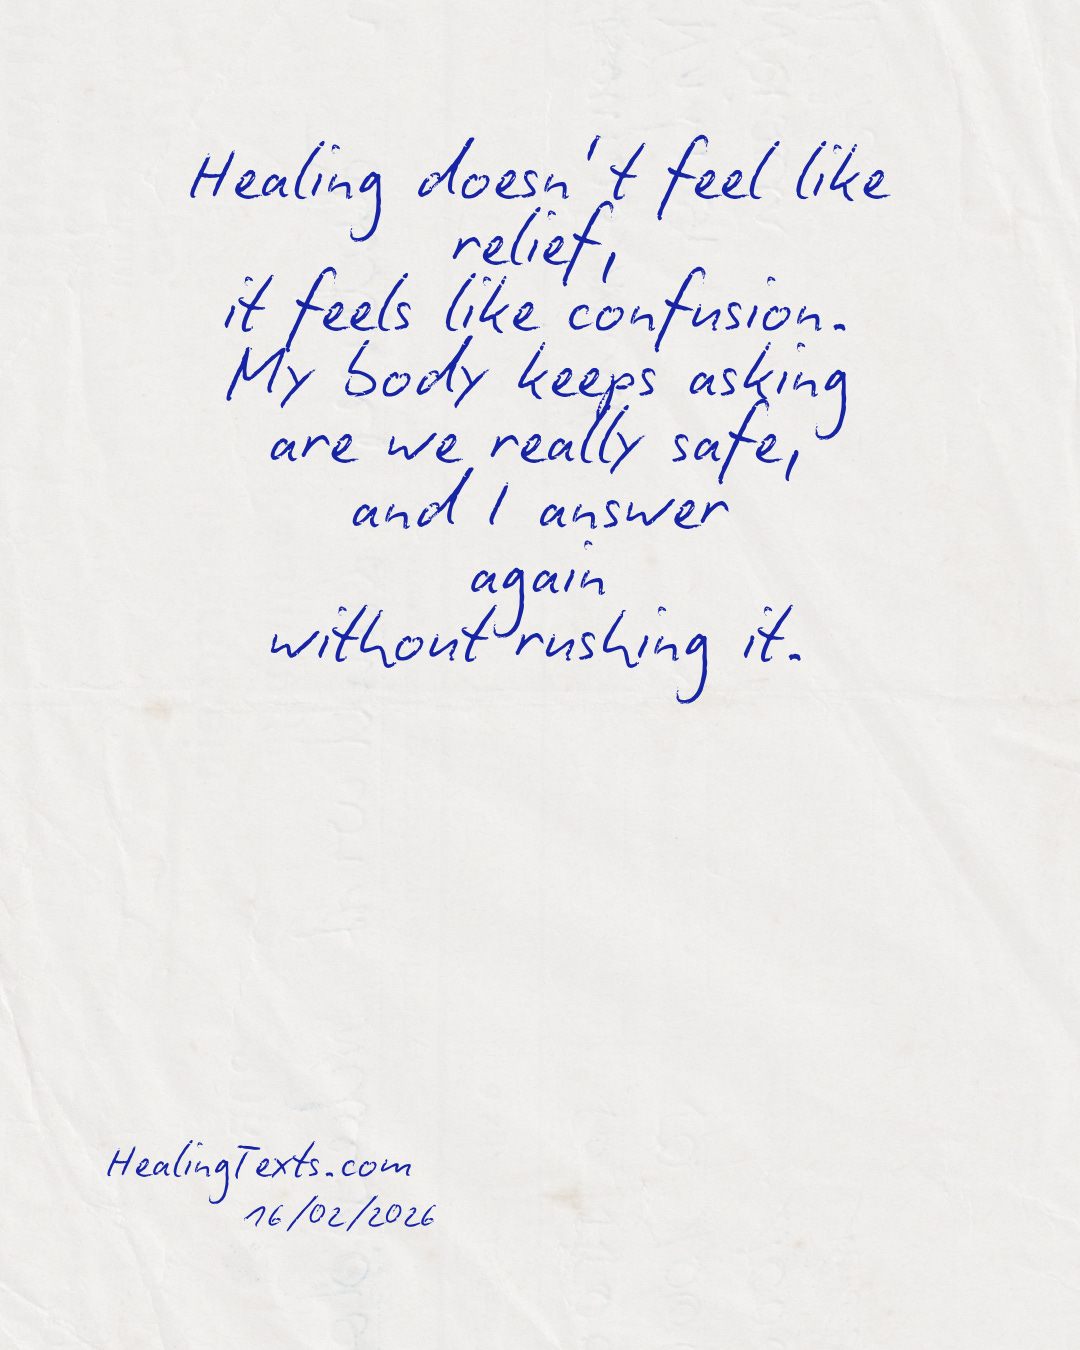 Healing doesn't feel like
relief,
it feels like confusion.
My body keeps asking
are we really safe,
and I answer
again
without rushing it.
HealingTexts.com
16/02/2026